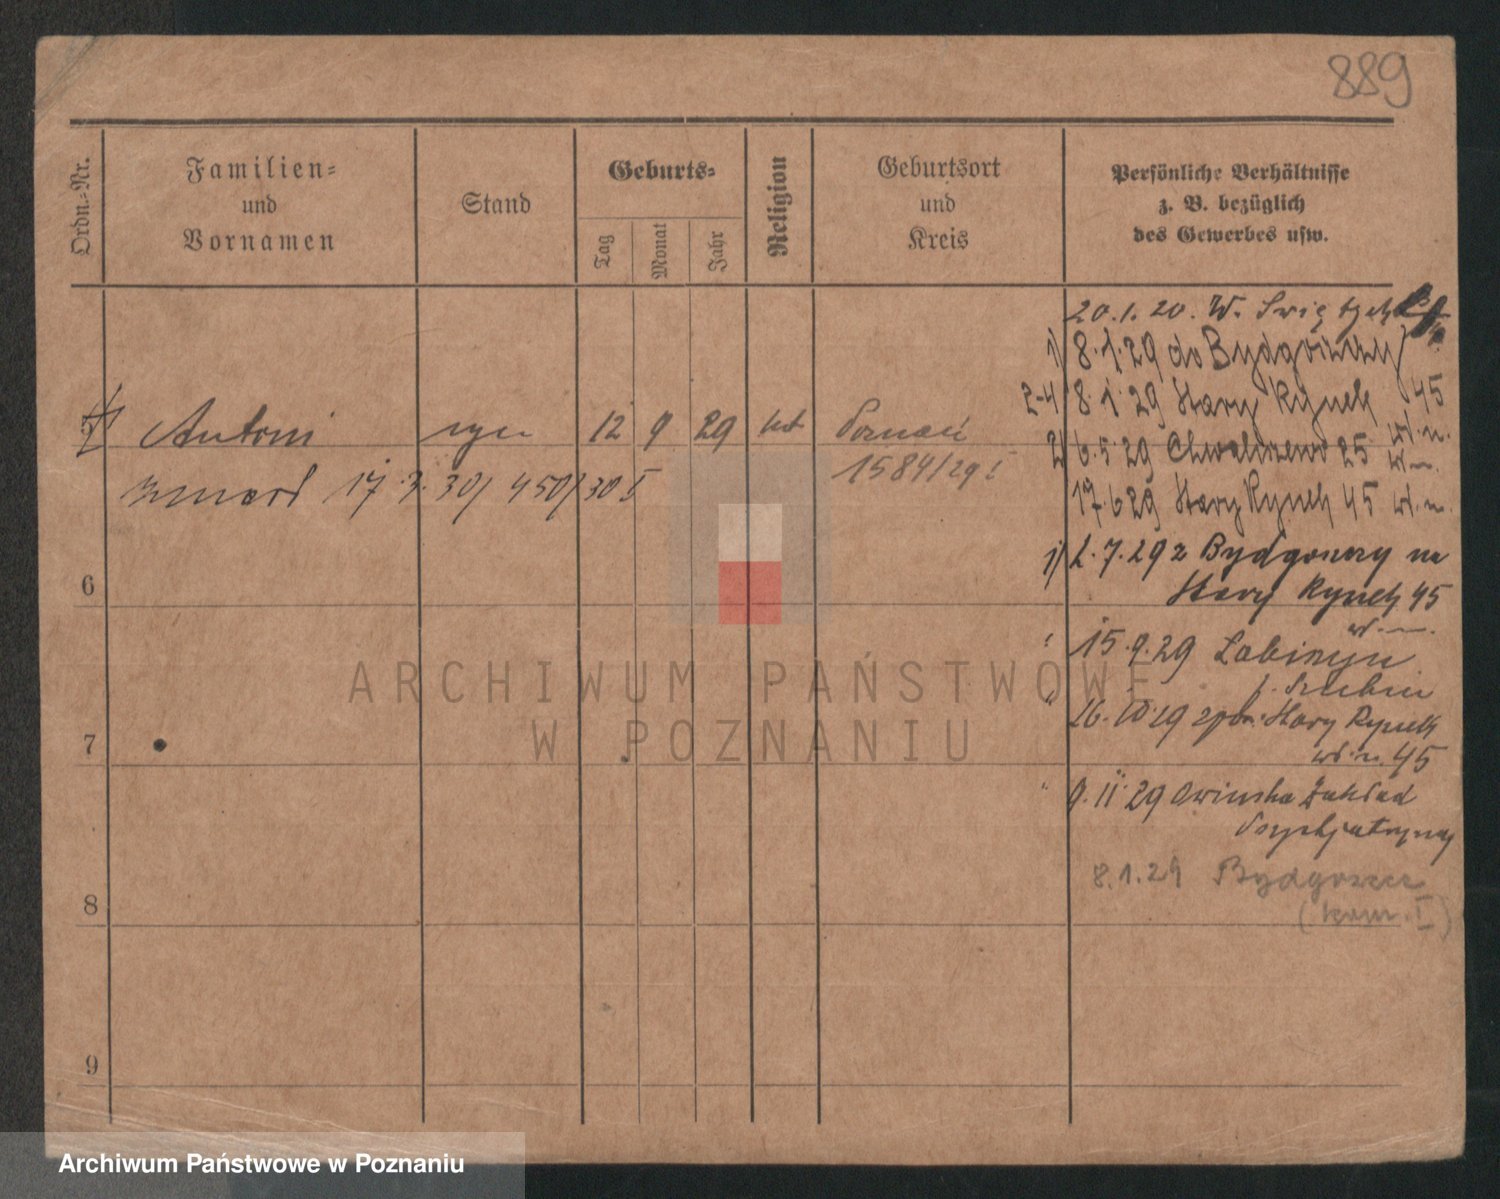 889
Ordn.-Nr.
Familien-
und
Vornamen
Stand
Geburts-
Tag
Monat
Jahr
Religion
Geburtsort
und
Kreis
Persönliche Verhältnisse
z. B. bezüglich
des Gewerbes usw.
20.1.20. W.
1) 8.1.29 do Bydgoszczy
2-4) 8.1.29 Stary Rynek 45
wł. n.
5 Antoni syn 12 9 29 kat Poznań
2) 6.5.29 Chwaliszewo 25
zmarł 17.3.30/450/30 I
1584/29 I
17.6.29 Stary Rynek 45 wł. n.
1) 2.7.29 z Bydgoszczy na
Stary Rynek 45
6
15.9.29 Łabiszyn
p. Szubin
26.10.29 Stary Rynek
wł. n. 45
7
9.11.29 Owinska Zakład
Psychjatryczny
8.1.29 Bydgoszcz
(kom. I)
8
9
ARCHIWUM PAŃSTWOWE
W POZNANIU
Archiwum Państwowe w Poznaniu